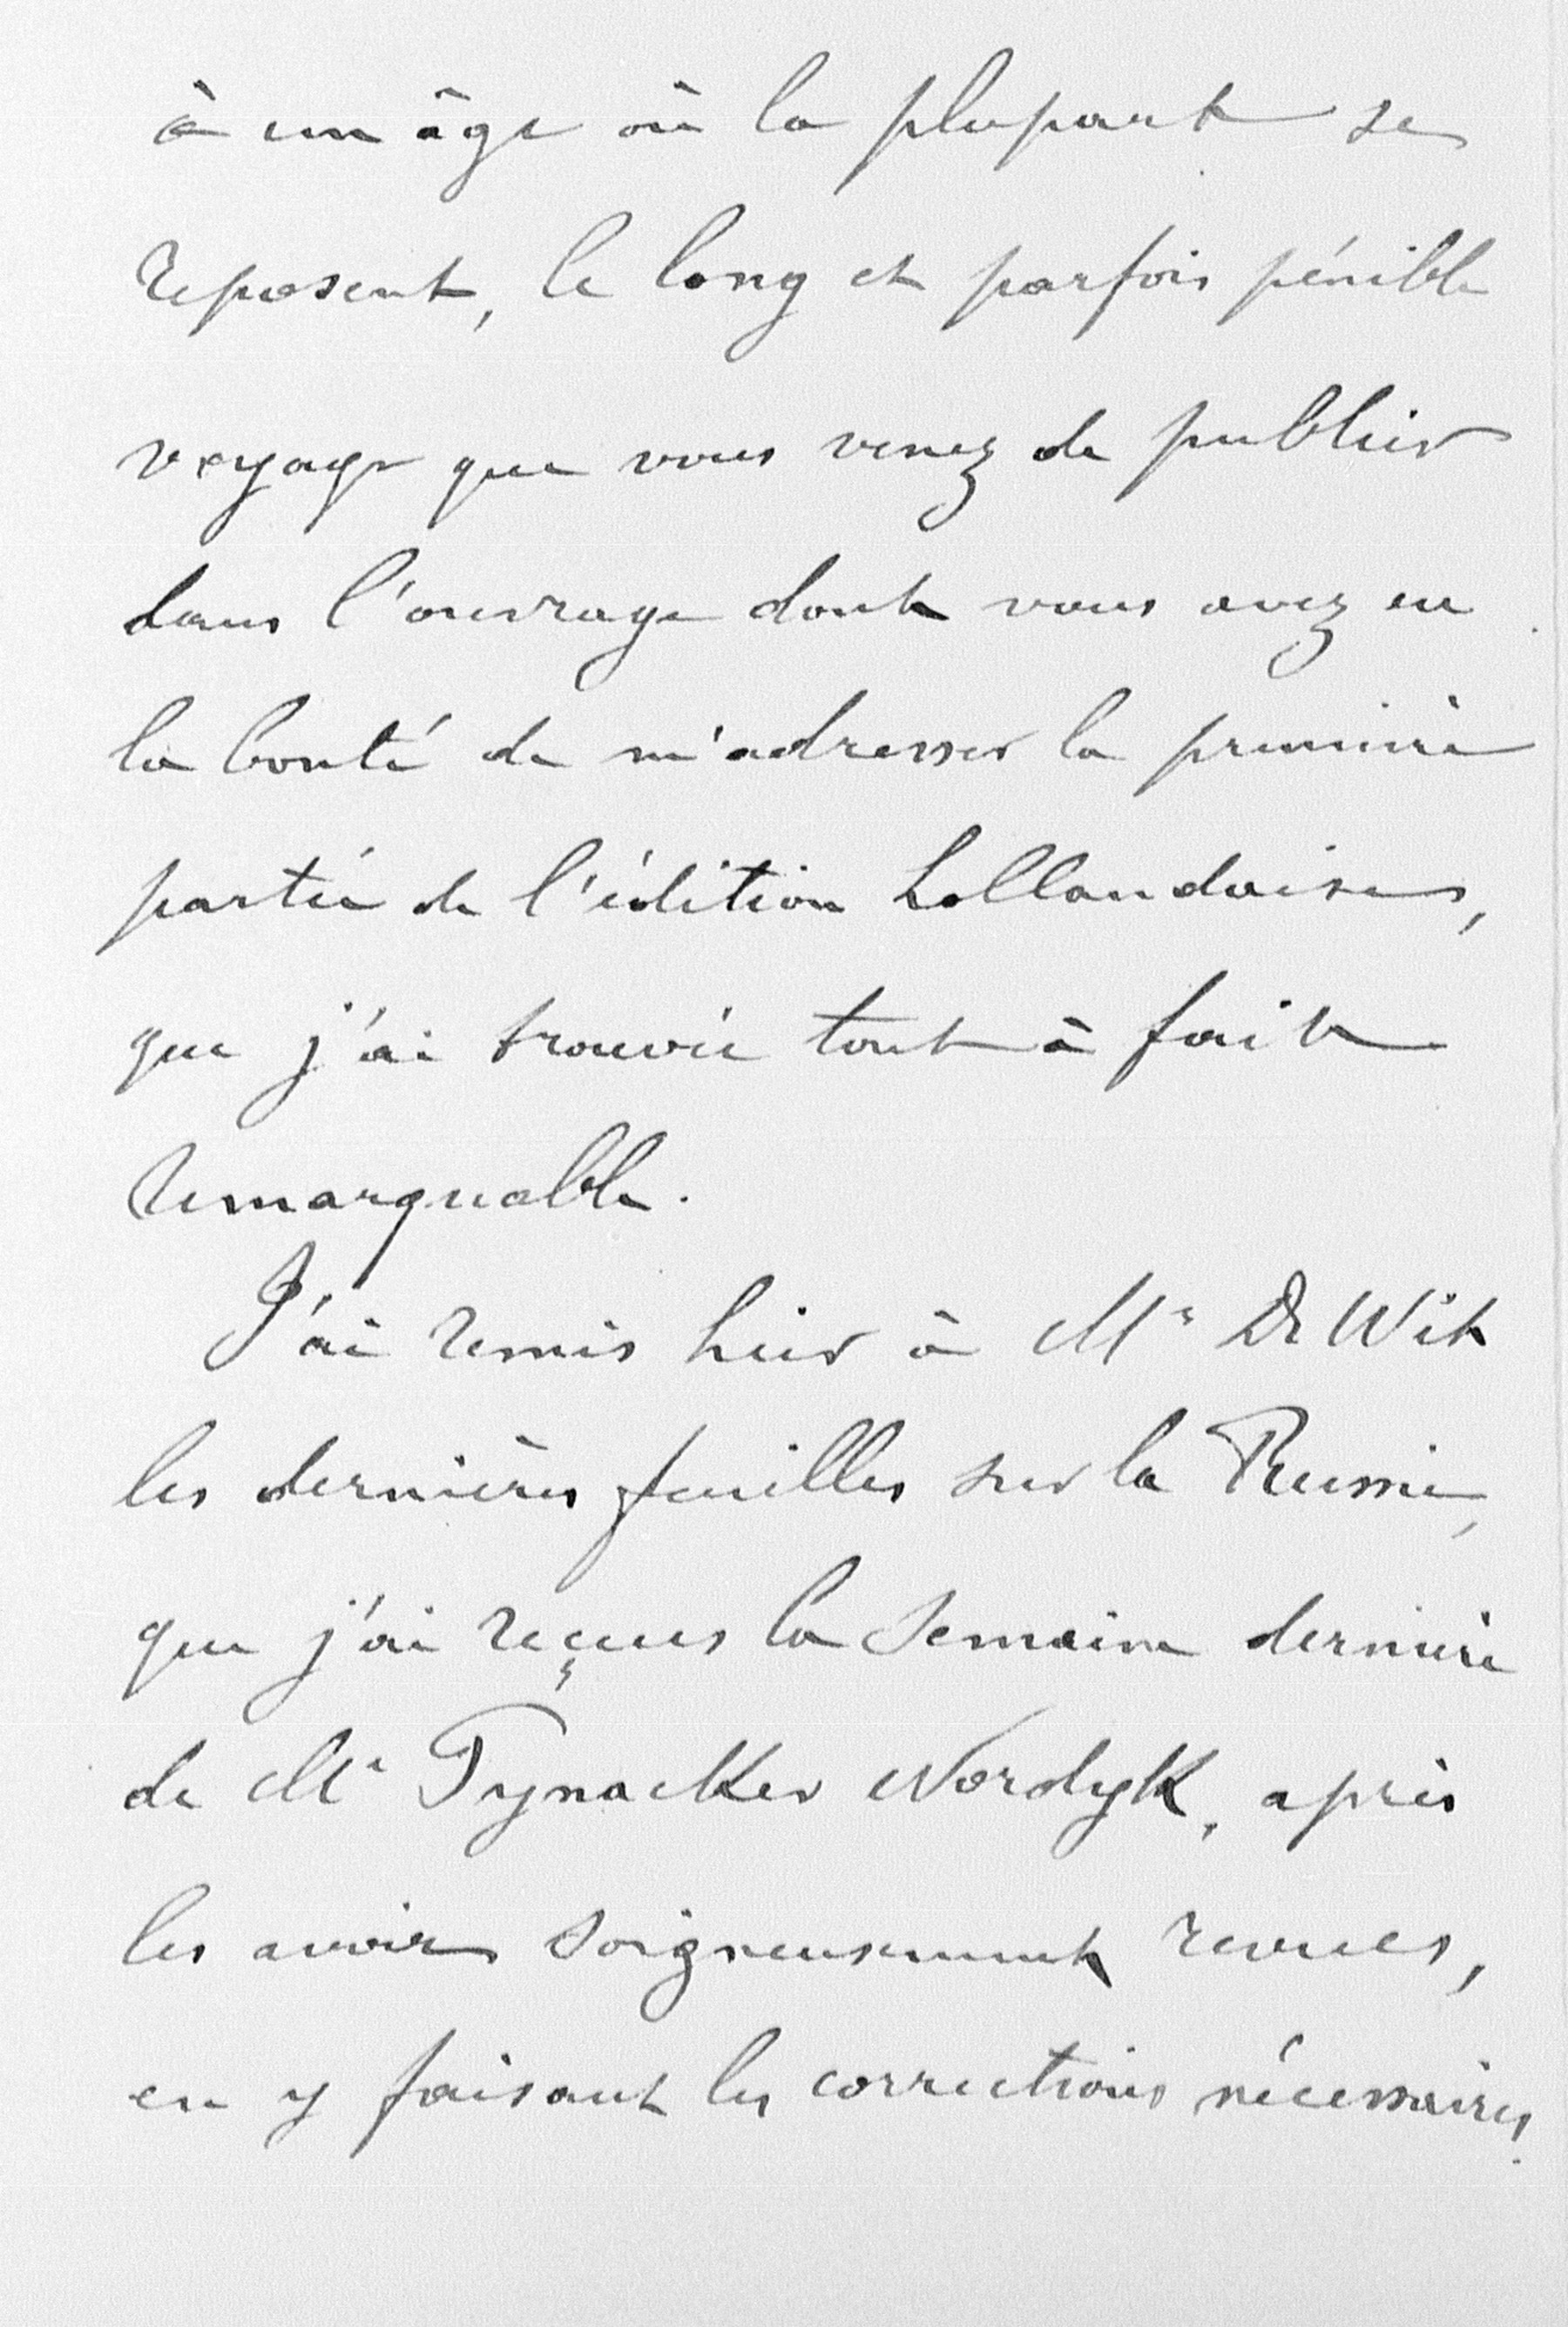 à un âge où la plupart se
reposent, le long et parfois pénible
voyage que vous venez de publier
dans l'ouvrage dont vous avez eu
la bonté de m'adresser la première
partie de l'édition hollandaise,
que j'ai trouvée tout à fait
remarquable.
J'ai remis hier à Mr De Wit
les dernières feuilles sur la Russie,
que j'ai reçues la semaine dernière
de Mr Tynacker Nordyk, après
les avoir soigneusement revues,
en y faisant les corrections nécessaires.